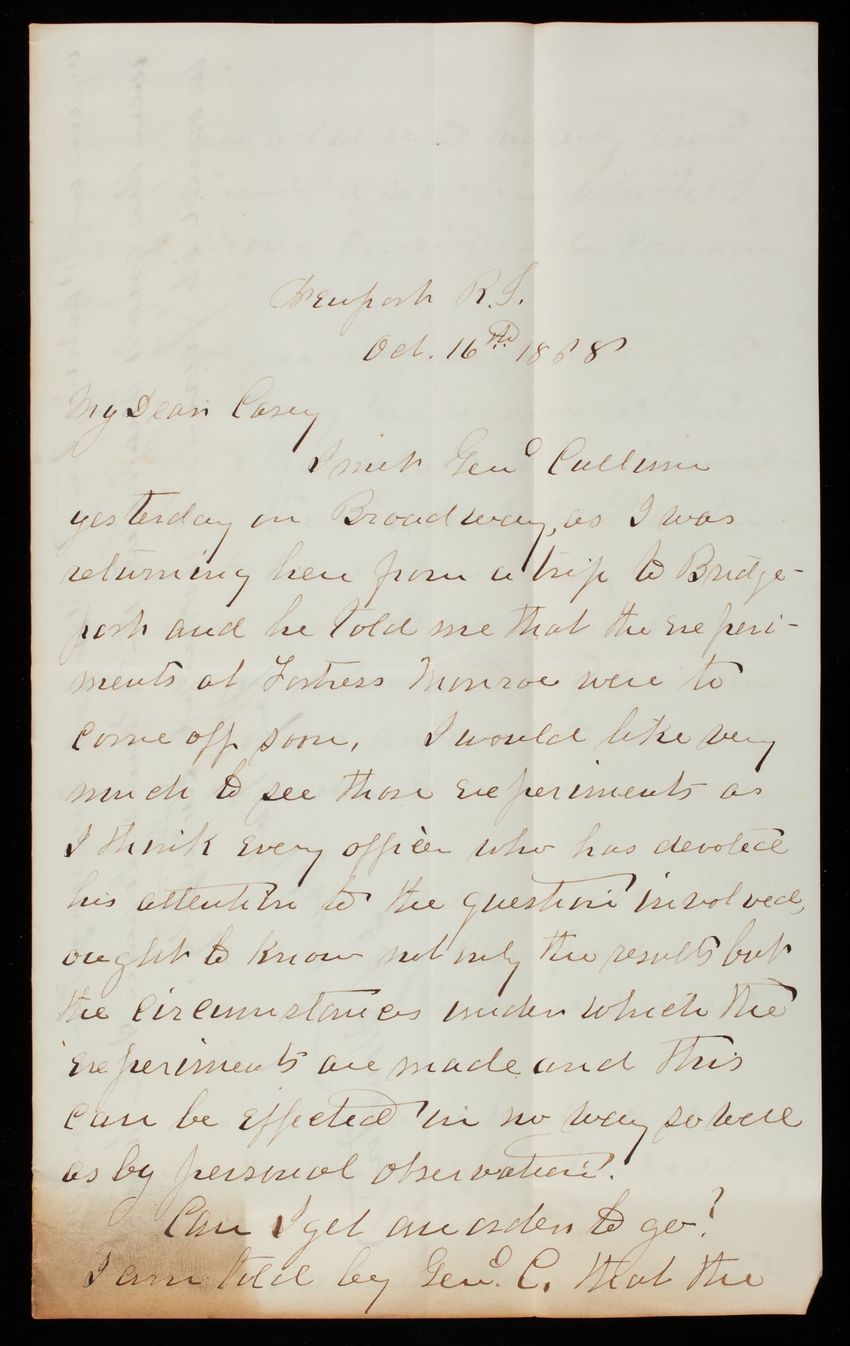 Newport R.I.
Oct. 16th 1868
My Dear Casey
I met Genl Cullum
yesterday on Broadway, as I was
returning here from a trip to Bridge-
port and he told me that the experi-
ments at Fortress Monroe were to
come off soon. I would like very
much to see those experiments as
I think every officer who has devoted
his attention to the question involved,
ought to know not only the results but
the circumstances under which the
experiments are made and this
can be effected in no way so well
as by personal observation.
Can I get an order to go?
I am told by Genl. C. that the